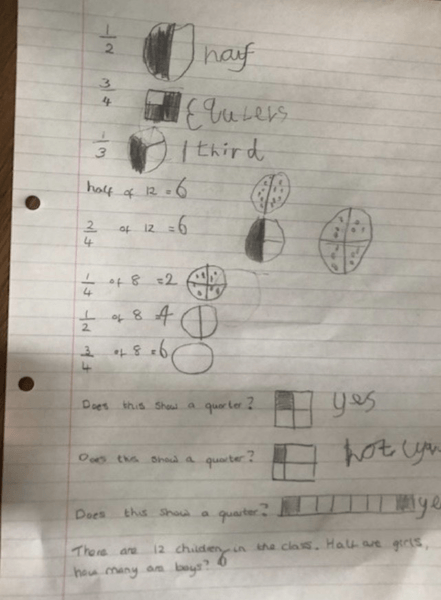 1/2 half
3/4 3 quters
1/3 1 third
half of 12 = 6
2/4 of 12 = 6
1/4 of 8 = 2
1/2 of 8 = 4
3/4 of 8 = 6
Does this show a quarter? yes
Does this show a quarter? not
Does this show a quarter?
There are 12 children in the class. Half are girls,
how many are boys? 6